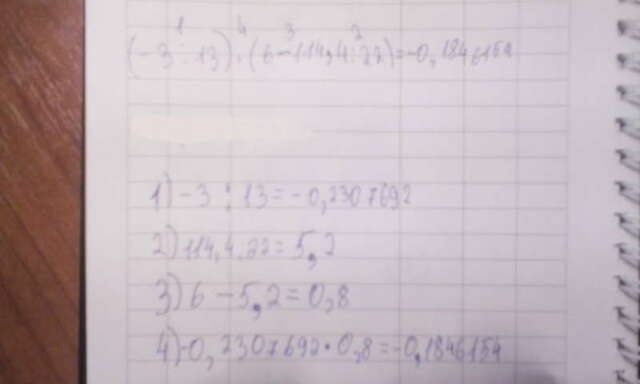 1 4 3 2
(-3:13)·(6-114,4:22)=-0,1846154
1) -3 : 13 = -0,2307692
2) 114,4:22 = 5,2
3) 6 - 5,2 = 0,8
4) -0,2307692·0,8 = -0,1846154